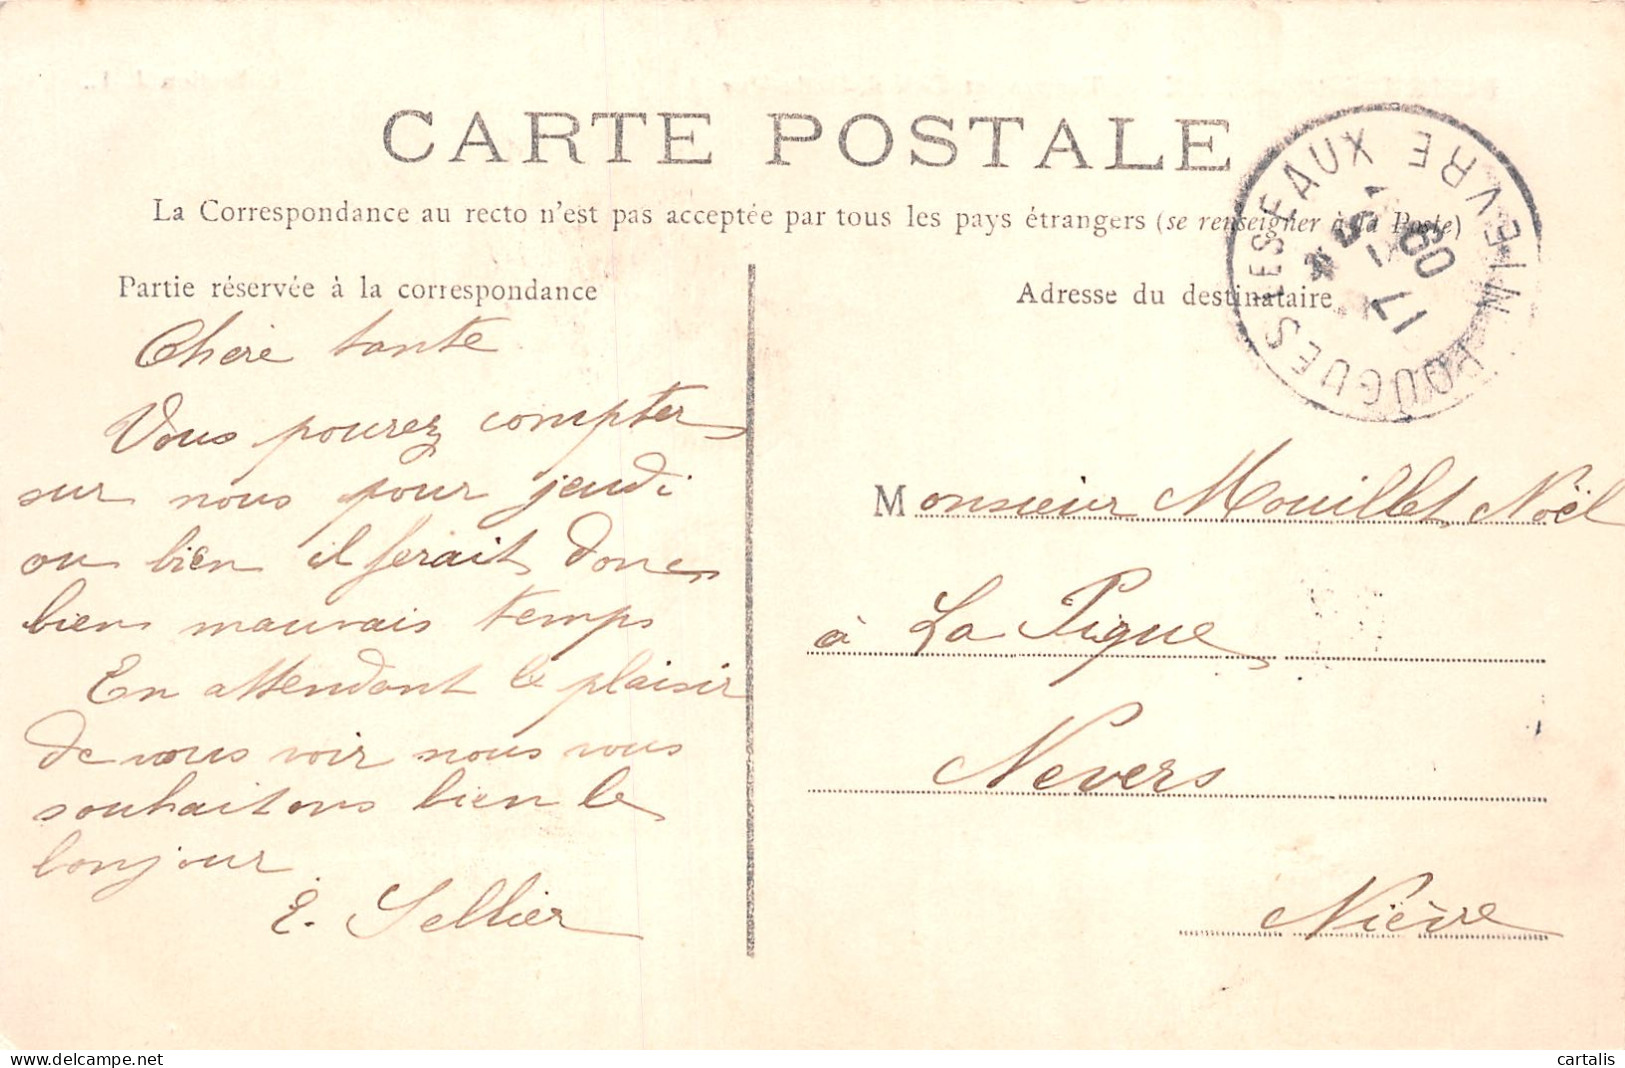 CARTE POSTALE
La Correspondance au recto n'est pas acceptée par tous les pays étrangers (se renseigner à la Poste)
Partie réservée à la correspondance
Chère tante
Vous pourez compter
sur nous pour jeudi
ou bien il ferait donc
bien mauvais temps
En attendant le plaisir
de vous voir nous vous
souhaitons bien le
bonjour
E. Sellier
Adresse du destinataire
Monsieur Mouillet Noël
à La Pique
Nevers
Nièvre
POUGUES LES EAUX NIEVRE
17
09
cartalis